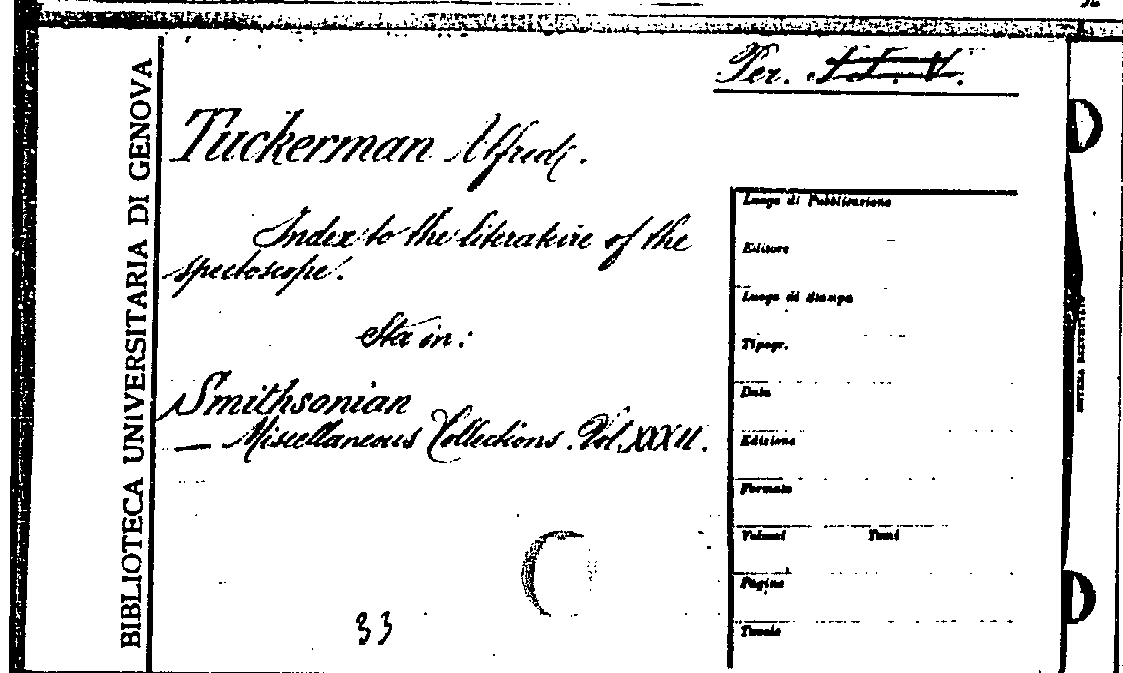 BIBLIOTECA UNIVERSITARIA DI GENOVA
Per.
Tuckerman Alfred.
Index to the literature of the
spectoscope.
Sta in:
Smithsonian
— Miscellaneous Collections. Vol. XXXII.
33
Luogo di Pubblicazione
Editore
Luogo di Stampa
Tipogr.
Data
Edizione
Formato
Volumi Tomi
Pagine
Tavole